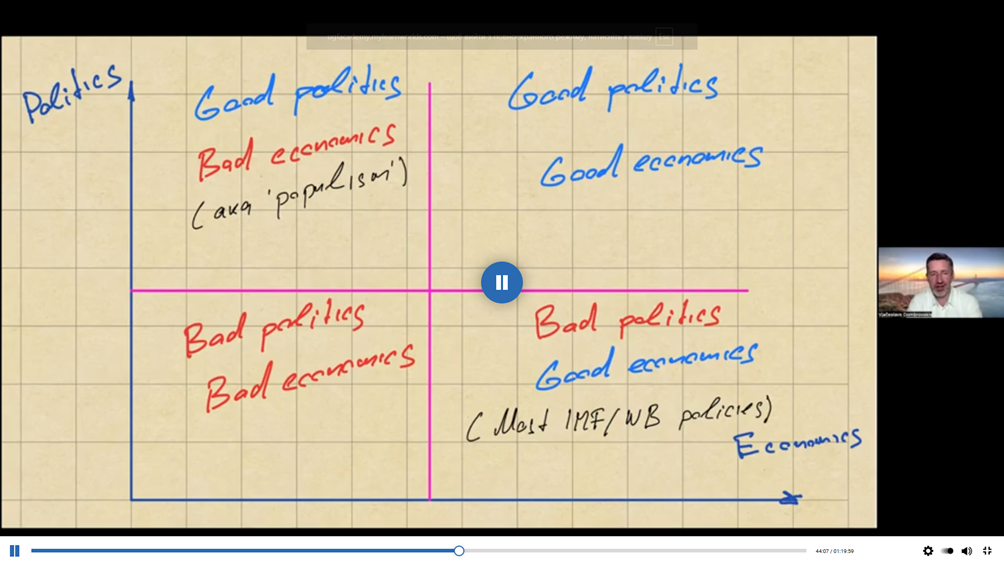 Politics
Good politics
Bad economics
(aka 'populism')
Good politics
Good economics
Bad politics
Bad economics
Bad politics
Good economics
(Most IMF/WB policies)
Economics
44:07 / 01:19:59